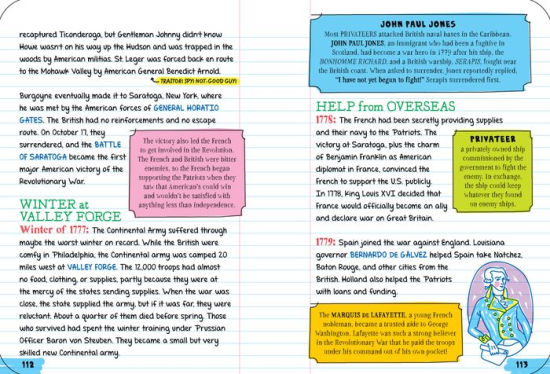 recaptured Ticonderoga, but Gentleman Johnny didn't know
Howe wasn't on his way up the Hudson and was trapped in the
woods by American militias. St. Leger was forced back en route
to the Mohawk Valley by American General Benedict Arnold.
TRAITOR! SPY! NOT-GOOD GUY!
Burgoyne eventually made it to Saratoga, New York, where
he was met by the American forces of GENERAL HORATIO
GATES. The British had no reinforcements and no escape
route. On October 17, they
surrendered, and the BATTLE
OF SARATOGA became the first
major American victory of the
Revolutionary War.
The victory also led the French
to get involved in the Revolution.
The French and British were bitter
enemies, so the French began
supporting the Patriots when they
saw that American's could win
and wouldn't be satisfied with
anything less than independence.
WINTER at
VALLEY FORGE
Winter of 1777: The Continental Army suffered through
maybe the worst winter on record. While the British were
comfy in Philadelphia, the Continental army was camped 20
miles west at VALLEY FORGE. The 12,000 troops had almost
no food, clothing, or supplies, partly because they were at
the mercy of the states sending supplies. When the war was
close, the state supplied the army, but if it was far, they were
reluctant. About a quarter of them died before spring. Those
who survived had spent the winter training under Prussian
Officer Baron von Steuben. They became a small but very
skilled new Continental army.
112
JOHN PAUL JONES
Most PRIVATEERS attacked British naval bases in the Caribbean.
JOHN PAUL JONES, an immigrant who had been a fugitive in
Scotland, had become a war hero in 1779 after his ship, the
BONHOMME RICHARD, and a British warship, SERAPIS, fought near
the British coast. When asked to surrender, Jones reportedly replied,
"I have not yet begun to fight!" Serapis surrendered first.
HELP from OVERSEAS
1778: The French had been secretly providing supplies
and their navy to the Patriots. The
victory at Saratoga, plus the charm
of Benjamin Franklin as American
diplomat in France, convinced the
French to support the U.S. publicly.
In 1778, King Louis XVI decided that
France would officially become an ally
and declare war on Great Britain.
PRIVATEER
a privately owned ship
commissioned by the
government to fight the
enemy. In exchange,
the ship could keep
whatever they found
on enemy ships.
1779: Spain joined the war against England. Louisiana
governor BERNARDO DE GÁLVEZ helped Spain take Natchez,
Baton Rouge, and other cities from the
British. Holland also helped the Patriots
with loans and funding.
The MARQUIS DE LAFAYETTE, a young French
nobleman, became a trusted aide to George
Washington. Lafayette was such a strong believer
in the Revolutionary War that he paid the troops
under his command out of his own pocket!
113